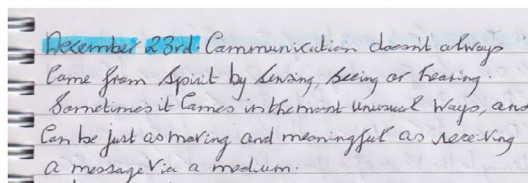 December 23rd. Communication doesn't always
Come from Spirit by Sensing, Seeing or hearing.
Sometimes it Comes in the most unusual ways, and
Can be just as moving and meaningful as receiving
a message via a medium.